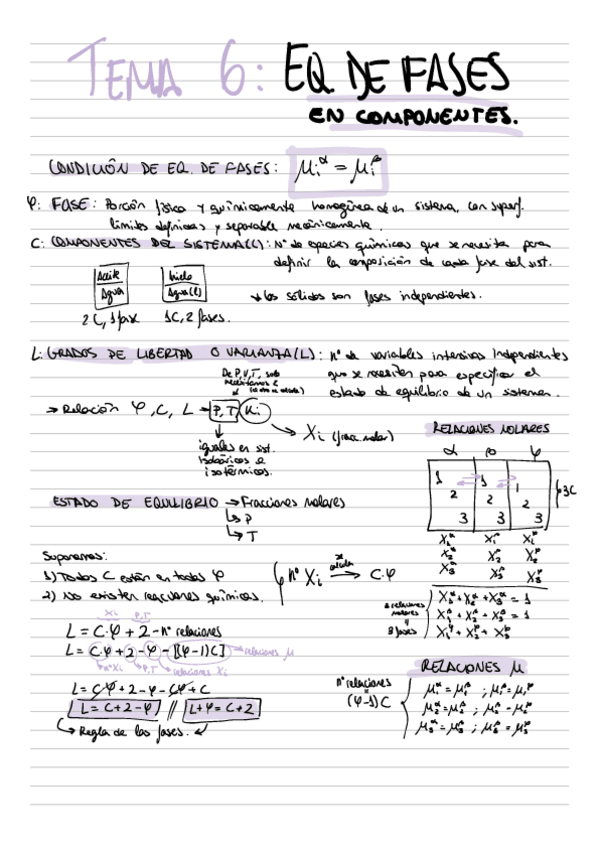 TEMA 6: EQ. DE FASES
EN COMPONENTES.
CONDICIÓN DE EQ. DE FASES: μᵢ^α = μᵢ^β
φ: FASE: Porción física y químicamente homogénea de un sistema, con superf.
límites definidas y separable mecánicamente.
C: COMPONENTES DEL SISTEMA(C): Nº de especies químicas que se necesita para
definir la composición de cada fase del sist.
Aceite
Agua
2C, 1 fase
hielo
Agua(l)
1C, 2 fases.
→ los sólidos son fases independientes.
L: GRADOS DE LIBERTAD O VARIANZA(L): nº de variables intensivas independientes
que se necesitan para especificar el
estado de equilibrio de un sistema.
De P, V, T, solo
necesitamos 2
→ Relación φ, C, L → P, T, Xi
→ Xi (frac. molar)
iguales en sist.
isobáricos e
isotérmicos.
RELACIONES MOLARES
α β φ
1 1 1
2 2 2
3 3 3
3C
X₁^α X₁^β X₁^φ
X₂^α X₂^β X₂^φ
X₃^α X₃^β X₃^φ
ESTADO DE EQUILIBRIO → Fracciones molares
↳ P
↳ T
Suponemos:
1) Todos C están en todas φ
2) No existen reacciones químicas.
nº Xi → C·φ
se calcula
X₁^α + X₂^α + X₃^α = 1
X₁^β + X₂^β + X₃^β = 1
X₁^φ + X₂^φ + X₃^φ
3 relaciones
molares
y
3 fases
Xi P,T
L = C·φ + 2 - nº relaciones
L = C·φ + 2 - φ - [(φ-1)C] → relaciones μ
nº Xi P,T relaciones Xi
L = Cφ + 2 - φ - Cφ + C
L = C + 2 - φ // L + φ = C + 2
→ Regla de las fases.
RELACIONES μ
nº relaciones
=
(φ-1)C
μ₁^α = μ₁^β ; μ₁^β = μ₁^φ
μ₂^α = μ₂^β ; μ₂^β = μ₂^φ
μ₃^α = μ₃^β ; μ₃^β = μ₃^φ